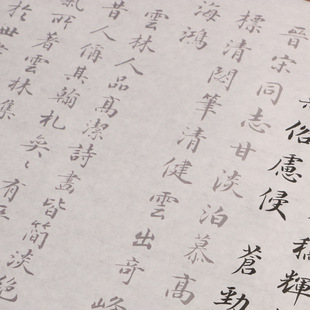 稱輝
俗慮侵
蒼勁
晉宋同志甘淡泊慕高
標清閟筆清健雲出奇峰
海鴻
雲林人品高潔詩畫皆簡淡絕
昔人稱其翰札奕々有
氣所著雲林集
於世